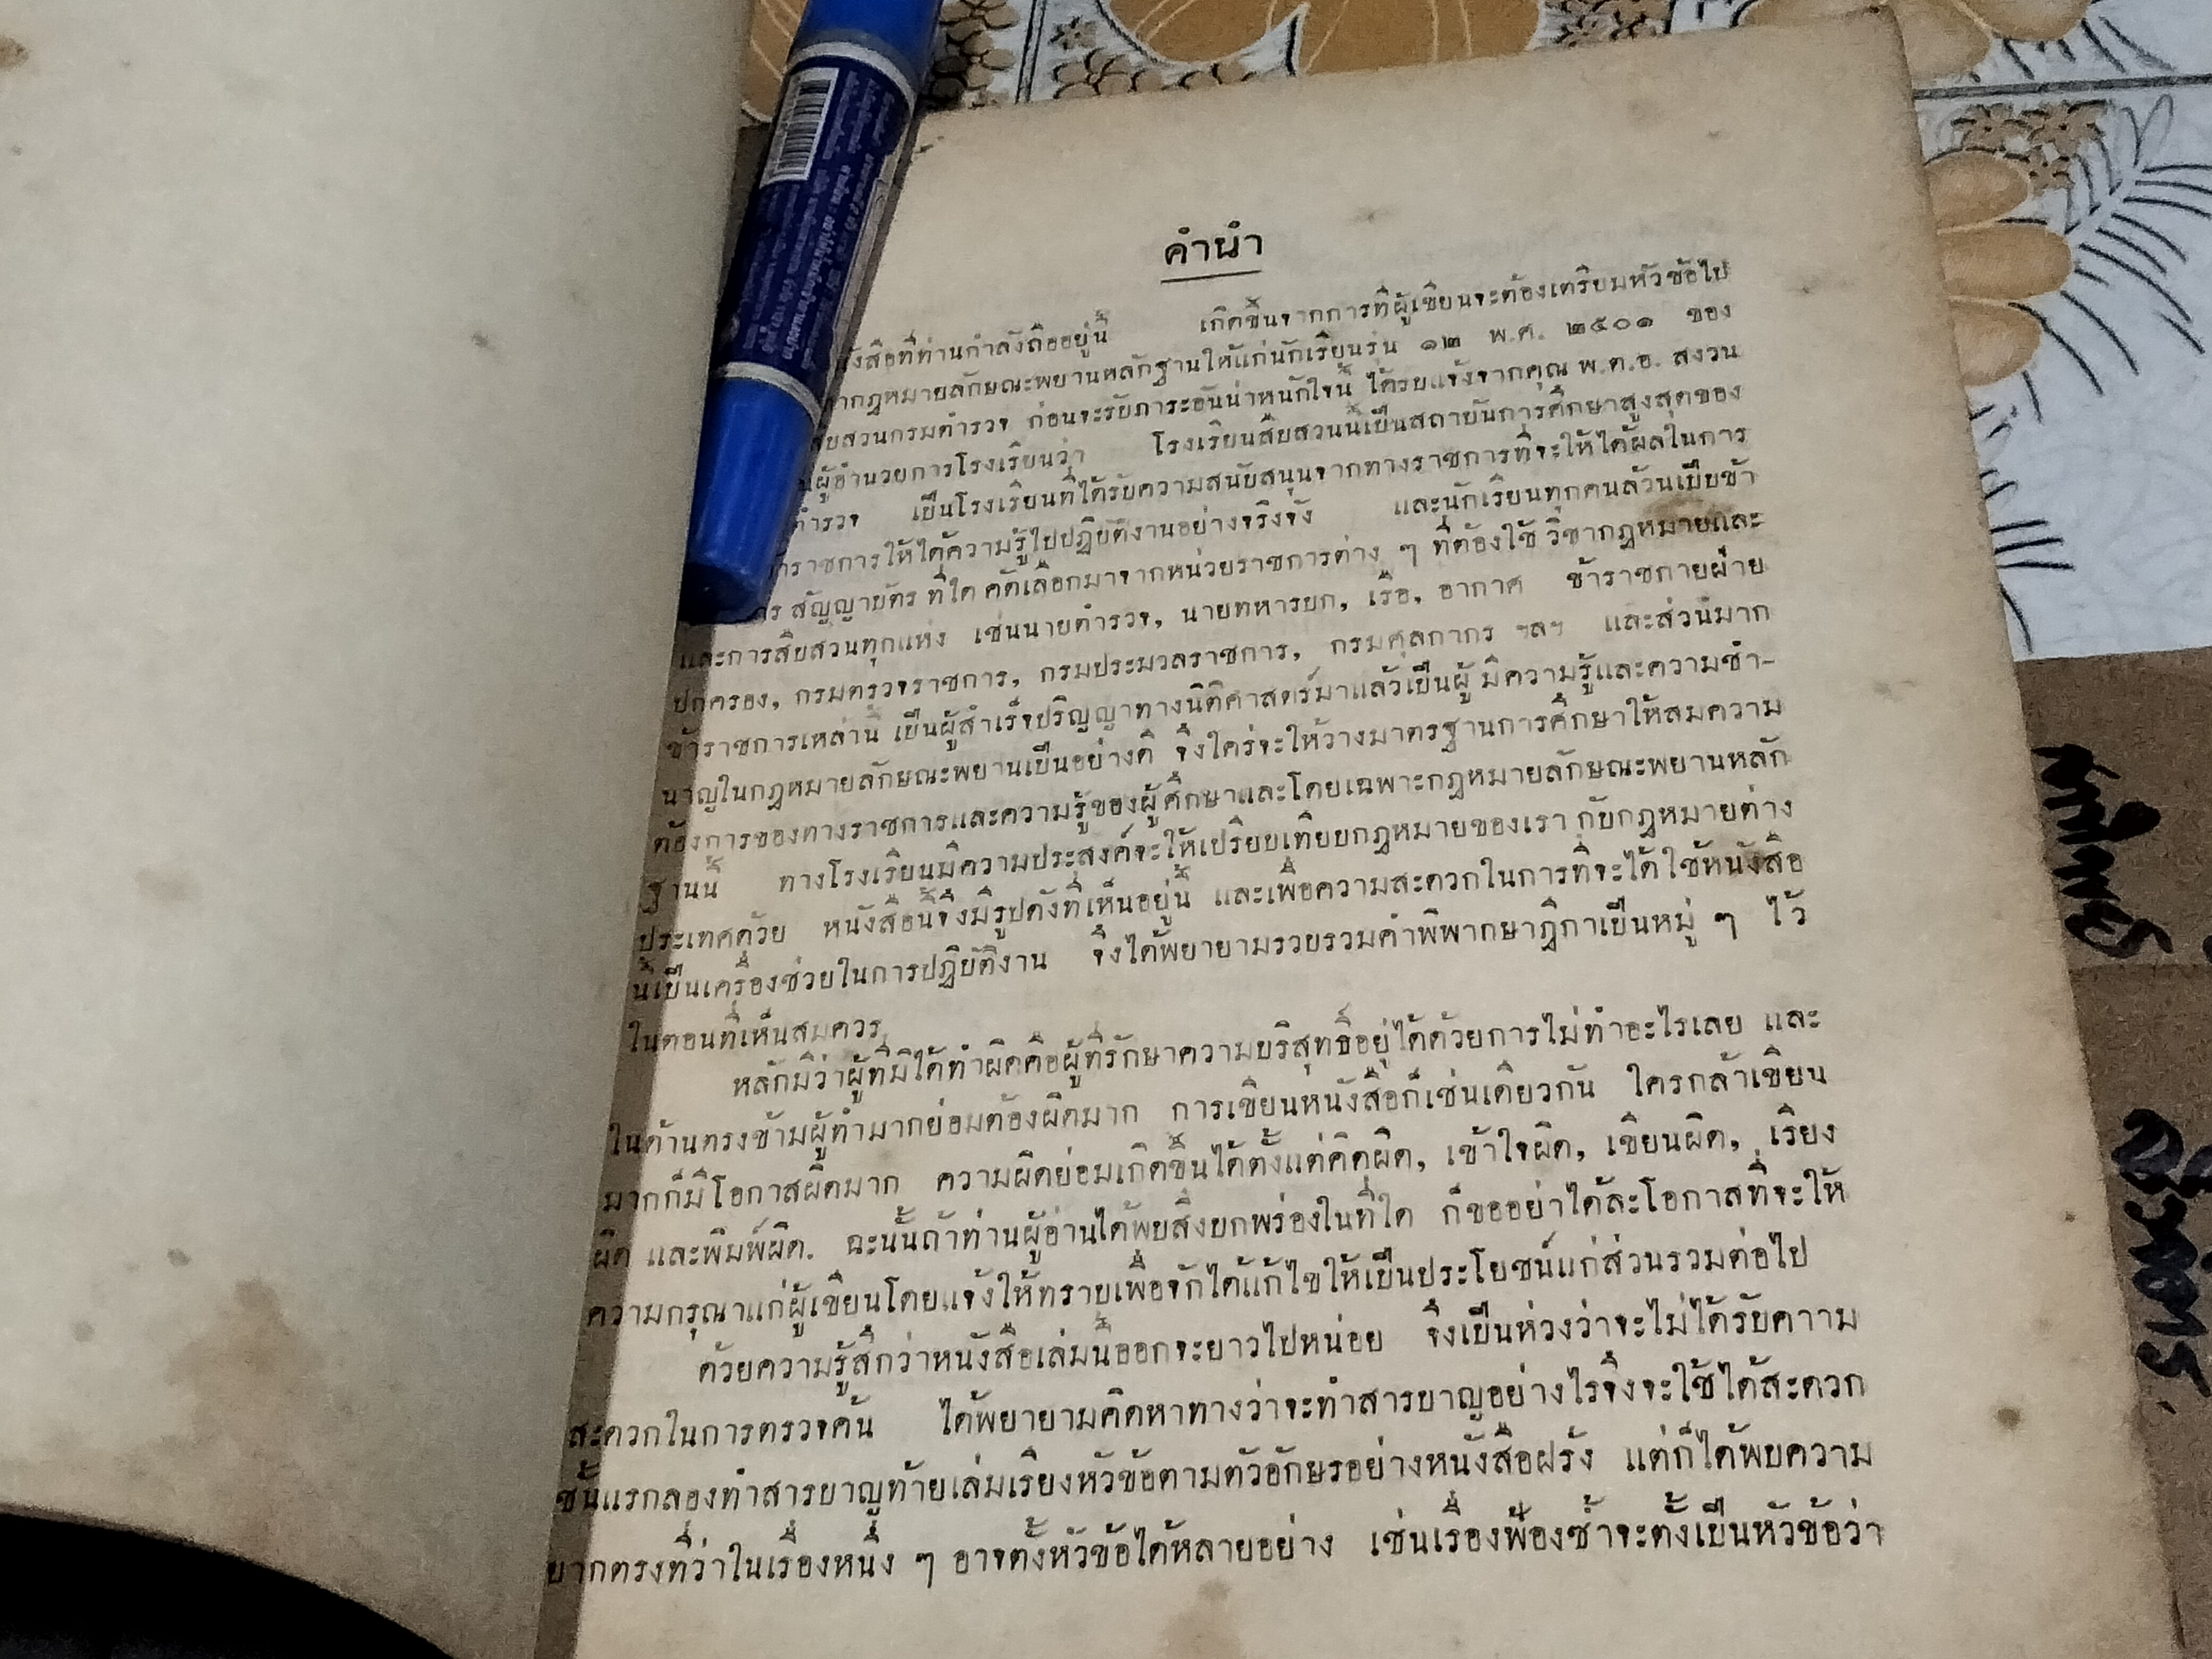 คำนำ
หนังสือที่ท่านกำลังถืออยู่นี้ เกิดขึ้นจากการที่ผู้เขียนจะต้องเตรียมหัวข้อไป
กฎหมายลักษณะพยานหลักฐานให้แก่นักเรียนรุ่น ๑๒ พ.ศ. ๒๕๐๑ ของ
สวนกรมตำรวจ ก่อนจะรับภาระอันน่าหนักใจนี้ ได้รับแจ้งจากคุณ พ.ต.อ. สงวน
ผู้อำนวยการโรงเรียนว่า โรงเรียนสืบสวนนี้เป็นสถาบันการศึกษาสูงสุดของ
ตำรวจ เป็นโรงเรียนที่ได้รับความสนับสนุนจากทางราชการที่จะให้ได้ผลในการ
ราชการให้ได้ความรู้ไปปฏิบัติงานอย่างจริงจัง และนักเรียนทุกคนล้วนเป็นข้า
สัญญาบัตร ที่ได้ คัดเลือกมาจากหน่วยราชการต่าง ๆ ที่ต้องใช้ วิชากฎหมายและ
และการสืบสวนทุกแห่ง เช่นนายตำรวจ, นายทหารบก, เรือ, อากาศ ข้าราชกายฝ่าย
ปกครอง, กรมตรวจราชการ, กรมประมวลราชการ, กรมศุลกากร ฯลฯ และส่วนมาก
ข้าราชการเหล่านี้ เป็นผู้สำเร็จปริญญาทางนิติศาสตร์มาแล้วเป็นผู้ มีความรู้และความชำ-
นาญในกฎหมายลักษณะพยานเป็นอย่างดี จึงใคร่จะให้วางมาตรฐานการศึกษาให้สมความ
ต้องการของทางราชการและความรู้ของผู้ศึกษาและโดยเฉพาะกฎหมายลักษณะพยานหลัก
ฐานนี้ ทางโรงเรียนมีความประสงค์จะให้เปรียบเทียบกฎหมายของเรา กับกฎหมายต่าง
ประเทศด้วย หนังสือนี้จึงมีรูปดังที่เห็นอยู่นี้ และเพื่อความสะดวกในการที่จะได้ ใช้หนังสือ
นี้เป็นเครื่องช่วยในการปฏิบัติงาน จึงได้พยายามรวบรวมคำพิพากษาฎีกาเป็นหมู่ ๆ ไว้
ในตอนที่เห็นสมควร
หลักมีว่าผู้ที่มิได้ทำผิดคือผู้ที่รักษาความบริสุทธิ์อยู่ได้ด้วยการไม่ทำอะไรเลย และ
ในด้านตรงข้ามผู้ทำมากย่อมต้องผิดมาก การเขียนหนังสือก็เช่นเดียวกัน ใครกล้าเขียน
มากก็มีโอกาสผิดมาก ความผิดย่อมเกิดขึ้นได้ตั้งแต่คิดผิด, เข้าใจผิด, เขียนผิด, เรียง
ผิด และพิมพ์ผิด. ฉะนั้นถ้าท่านผู้อ่านได้พบสิ่งบกพร่องในที่ใด ก็ขออย่าได้ละโอกาสที่จะให้
ความกรุณาแก่ผู้เขียนโดยแจ้งให้ทราบเพื่อจักได้แก้ไขให้เป็นประโยชน์แก่ส่วนรวมต่อไป
ด้วยความรู้สึกว่าหนังสือเล่มนี้ออกจะยาวไปหน่อย จึงเป็นห่วงว่าจะไม่ได้รับความ
สะดวกในการตรวจค้น ได้พยายามคิดหาทางว่าจะทำสารบาญอย่างไรจึงจะใช้ได้สะดวก
ชั้นแรกลองทำสารบาญท้ายเล่มเรียงหัวข้อตามตัวอักษรอย่างหนังสือฝรั่ง แต่ก็ได้พบความ
ยากตรงที่ว่าในเรื่องหนึ่ง ๆ อาจตั้งหัวข้อได้หลายอย่าง เช่นเรื่องฟ้องซ้ำจะตั้งเป็นหัวข้อว่า